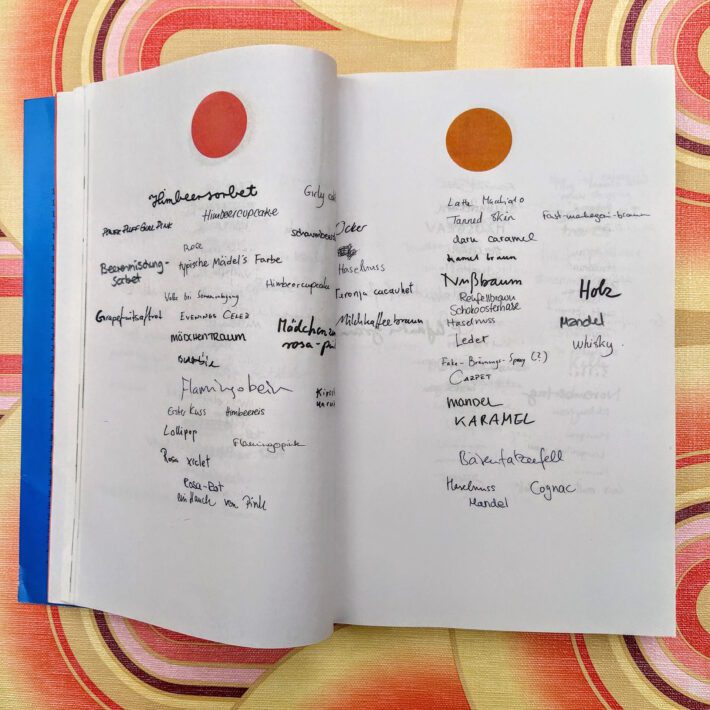 Himbeersorbet
Himbeercupcake
Girly
POWER PUFF GIRL PINK
Rose
Beerenmischung-
Sorbet
typische Mädel's Farbe
Himbeercupcake
Wolke bei Sonnenuntergang
Grapefruitsaftrot
EVENINGS
MÄDCHENTRAUM
Mädchen
rosa-pi
Barbie
Flamingobein
Erster Kuss
Himbeereis
Lollipop
Flamingopink
Rosa
Rosa-Rot
ein Hauch von Pink
Ocker
Haselnuss
Toronja cacauhet
Milchkaffeebraun
Latte Machiato
Tanned Skin
Fast-mahagoni-braun
dark caramel
kamel braun
Nußbaum
Holz
Rehfellbraun
Schokoosterhase
Haselnuss
Mandel
Leder
Whisky
Fake-Bräunungs-Spray (?)
CARPET
mandel
KARAMEL
Bärentatzenfell
Haselnuss
Cognac
Mandel